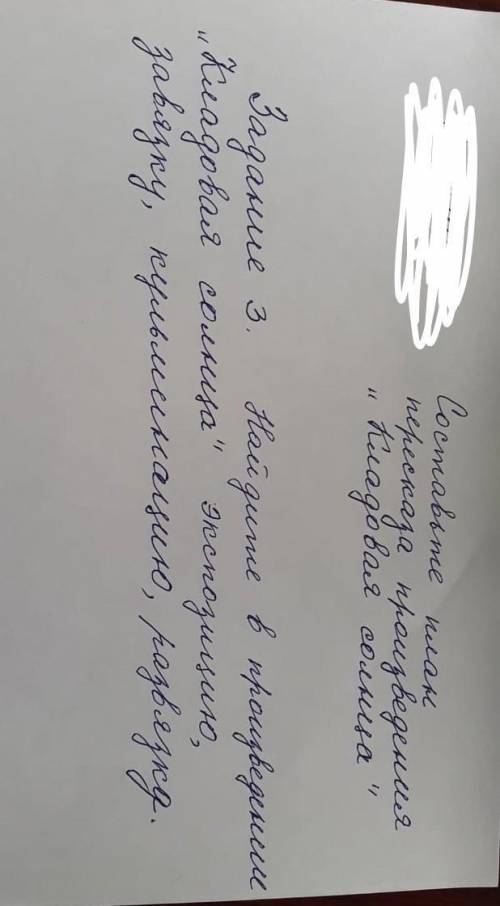 Составьте план
пересказа произведения
„Кладовая солнца"
Задание 3. Найдите в произведении
„Кладовая солнца" экспозицию,
завязку, кульминацию, развязку.